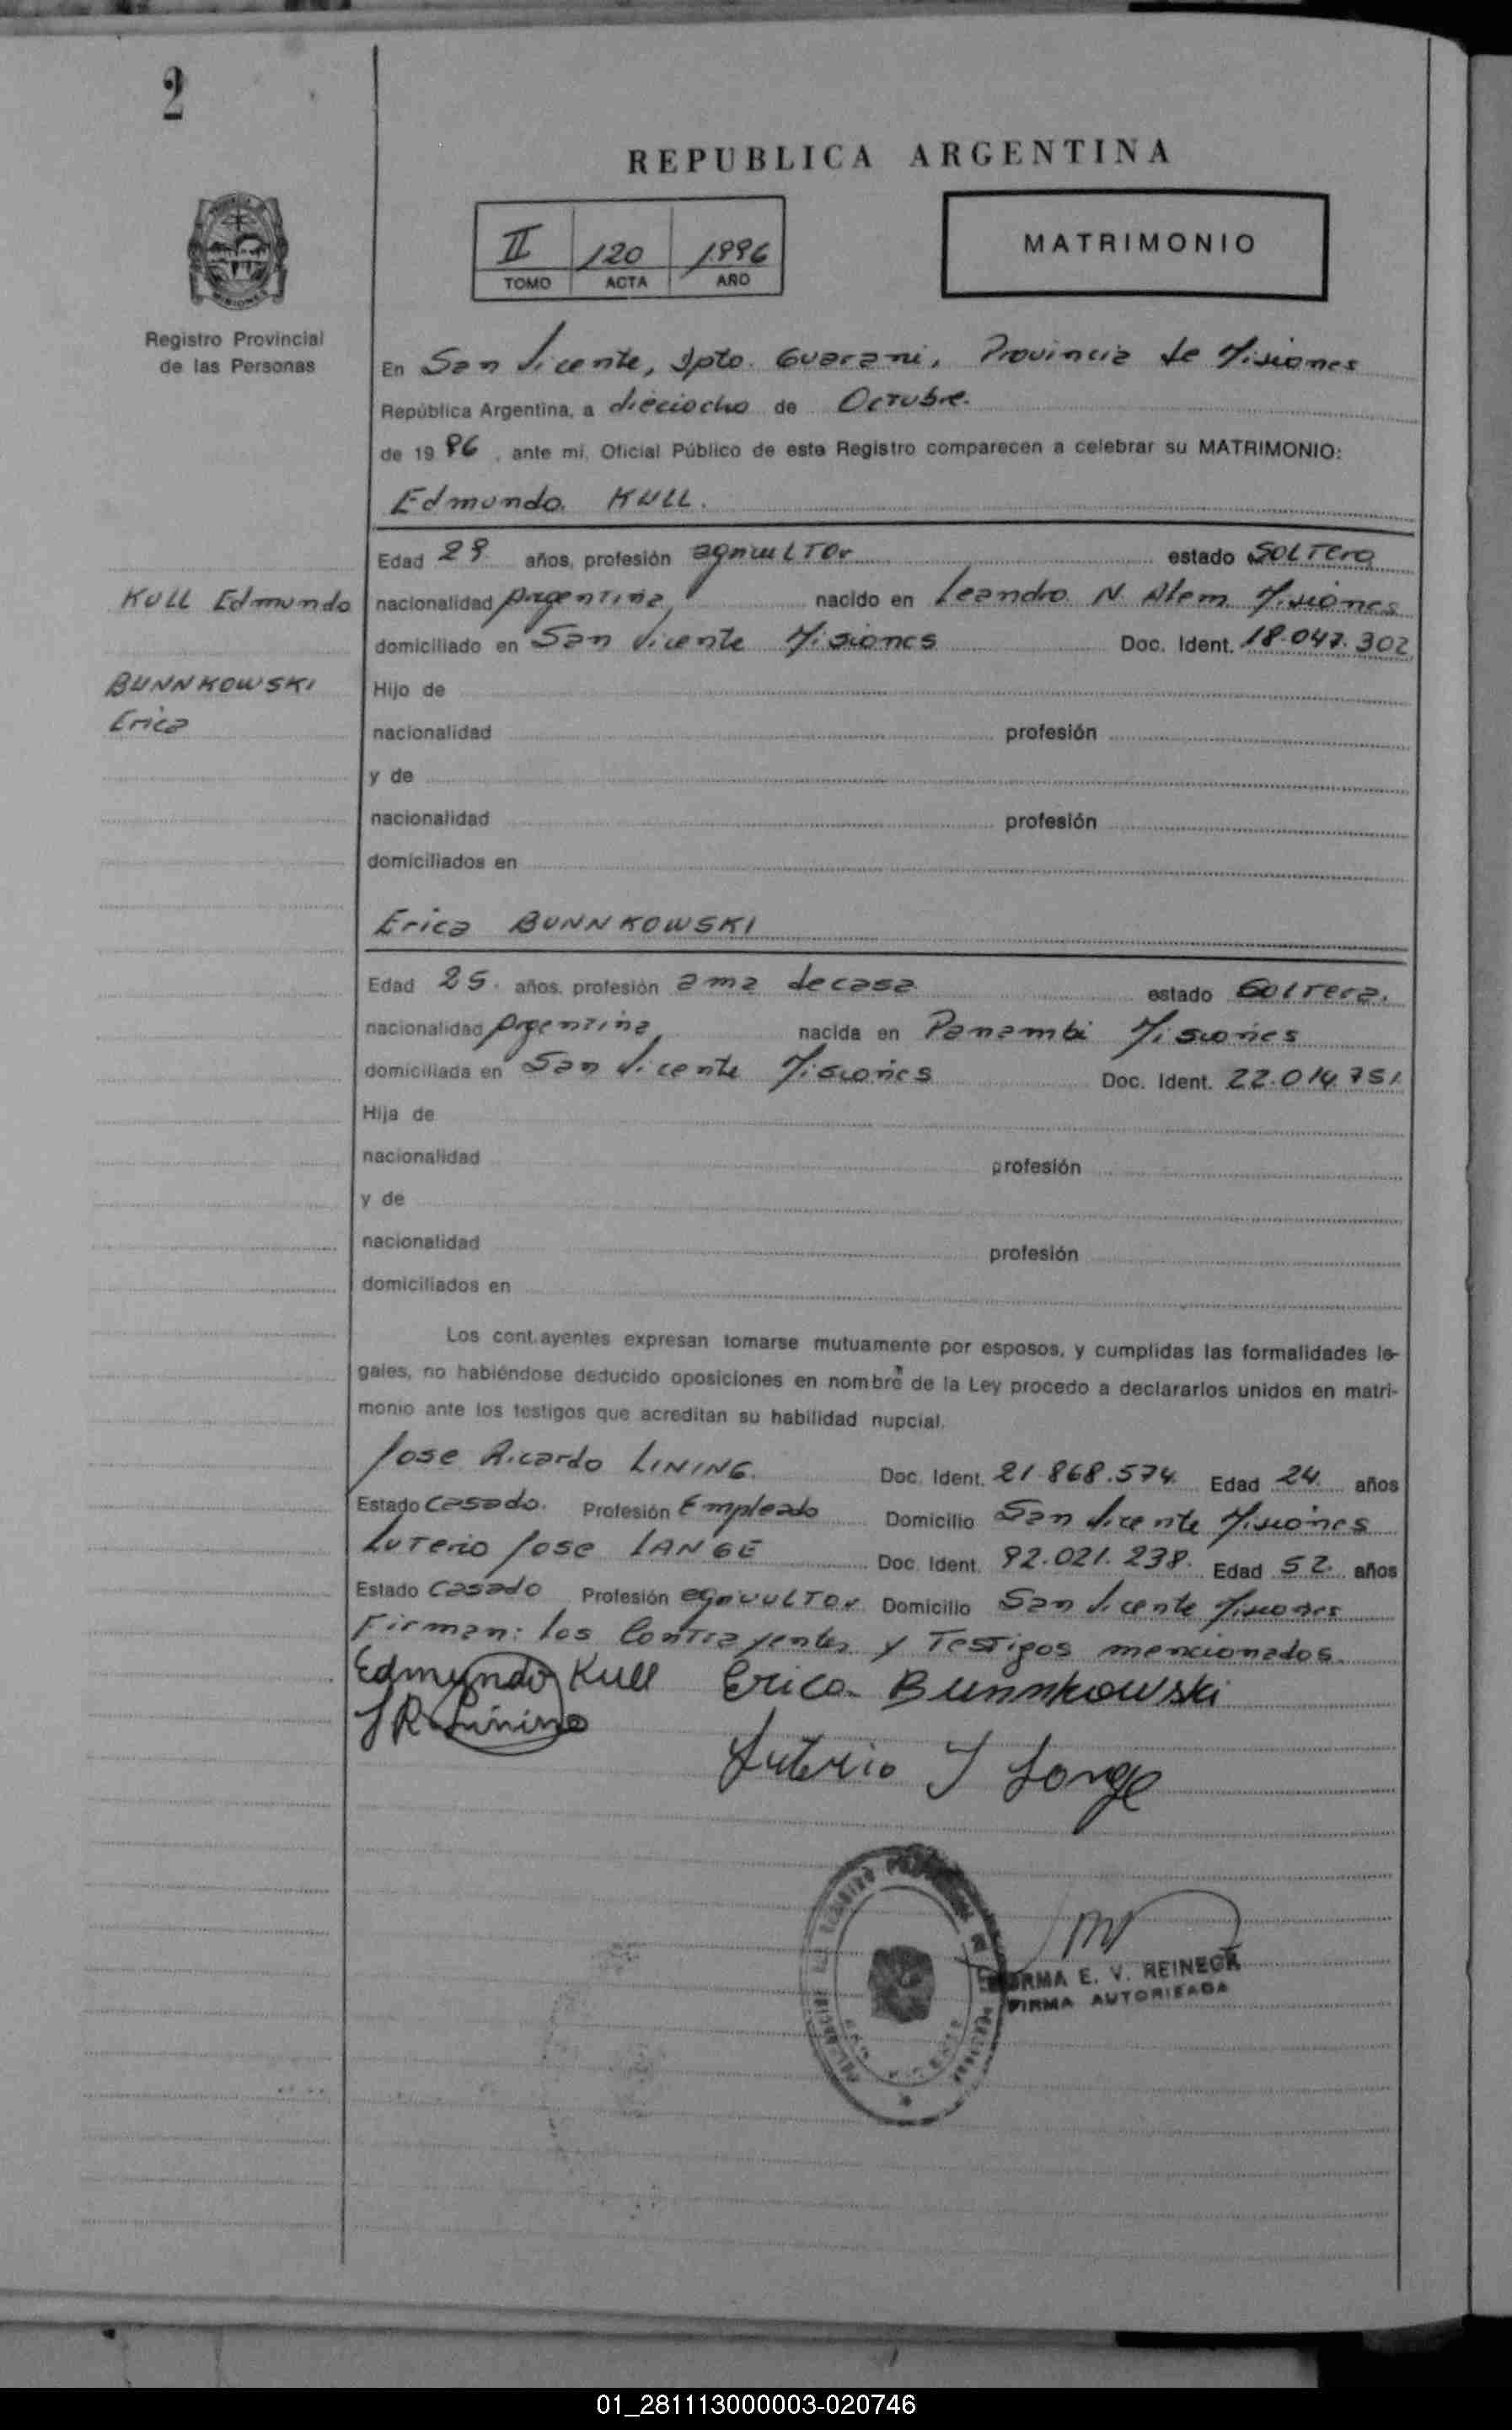 2
REPUBLICA ARGENTINA
II 120 1996
TOMO ACTA AÑO
MATRIMONIO
Registro Provincial
de las Personas
En San Vicente, Dpto. Guarani, Provincia de Misiones
República Argentina, a dieciocho de Octubre.
de 1996, ante mi, Oficial Público de este Registro comparecen a celebrar su MATRIMONIO:
Edmundo KULL.
Edad 29 años, profesión agricultor estado Soltero
KULL Edmundo
nacionalidad Argentina nacido en Leandro N. Alem Misiones
domiciliado en San Vicente Misiones Doc. Ident. 18.047.302
BUNNKOWSKI
Erica
Hijo de
nacionalidad profesión
y de
nacionalidad profesión
domiciliados en
Erica BUNNKOWSKI
Edad 25. años, profesión ama de casa estado Soltera.
nacionalidad Argentina nacida en Panambi Misiones
domiciliada en San Vicente Misiones Doc. Ident. 22.014.751
Hija de
nacionalidad profesión
y de
nacionalidad profesión
domiciliados en
Los cont.ayentes expresan tomarse mutuamente por esposos, y cumplidas las formalidades le-
gales, no habiéndose deducido oposiciones en nombre de la Ley procedo a declararlos unidos en matri-
monio ante los testigos que acreditan su habilidad nupcial.
Jose Ricardo LINING. Doc. Ident. 21.868.574 Edad 24. años
Estado Casado. Profesión Empleado Domicilio San Vicente Misiones
Luterio Jose LANGE Doc. Ident. 92.021.238. Edad 52. años
Estado Casado Profesión agricultor Domicilio San Vicente Misiones
Firman: los Contrayentes y Testigos mencionados.
Edmundo Kull Erica Bunnkowski
J R Lining
Luterio J Lange
E. V. REINECK
FIRMA AUTORIZADA
01_281113000003-020746